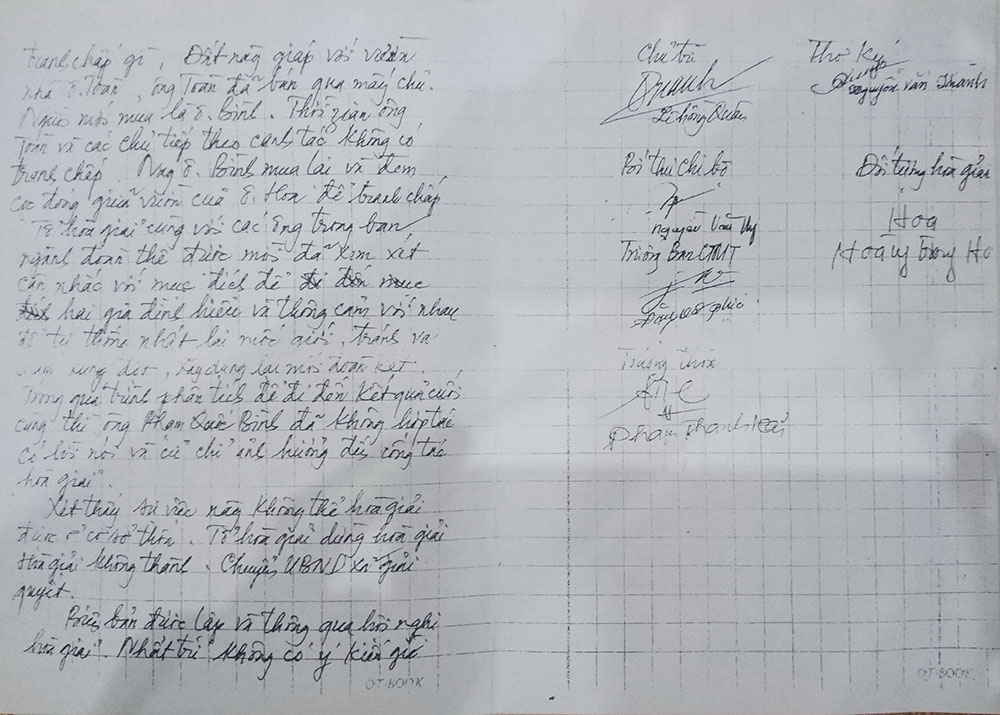 tranh chấp gì, Đất này giáp với vườn
nhà ô. Toàn, ông Toàn đã bán qua mấy chủ.
Người mới mua là ô. Bình. Thời gian ông
Toàn và các chủ tiếp theo canh tác không có
tranh chấp. Nay ô. Bình mua lại và đem
cọc đóng giữa vườn của ô. Hoa để tranh chấp
Tổ hòa giải cùng với các ông trong ban
ngành đoàn thể được mời đã xem xét
cân nhắc với mục đích để
hai gia đình hiểu và thông cảm với nhau
để tự thống nhất lại mốc giới, tránh va
xây dựng lại mối đoàn kết.
Trong quá trình phân tích để đi đến kết quả cuối
cùng thì ông Phạm Quốc Bình đã không hợp tác
có lời nói và cử chỉ ảnh hưởng đến công tác
hòa giải.
Xét thấy sự việc này không thể hòa giải
được ở cơ sở thôn. Tổ hòa giải dừng hòa giải
Hòa giải không thành. Chuyển UBND xã giải
quyết.
Biên bản được lập và thông qua hội nghị
hòa giải. Nhất trí không có ý kiến gì
QT-BOOK
Chủ trì
Lê Hồng Quân
Bí thư chi bộ
Nguyễn Văn Thụ
Trưởng Ban CTMT
Trưởng thôn
Phạm Thanh Hải
Thư Ký
Nguyễn Văn Thành
Đối tượng hòa giải
Hoa
Hoàng Trọng Ho
QT-BOOK